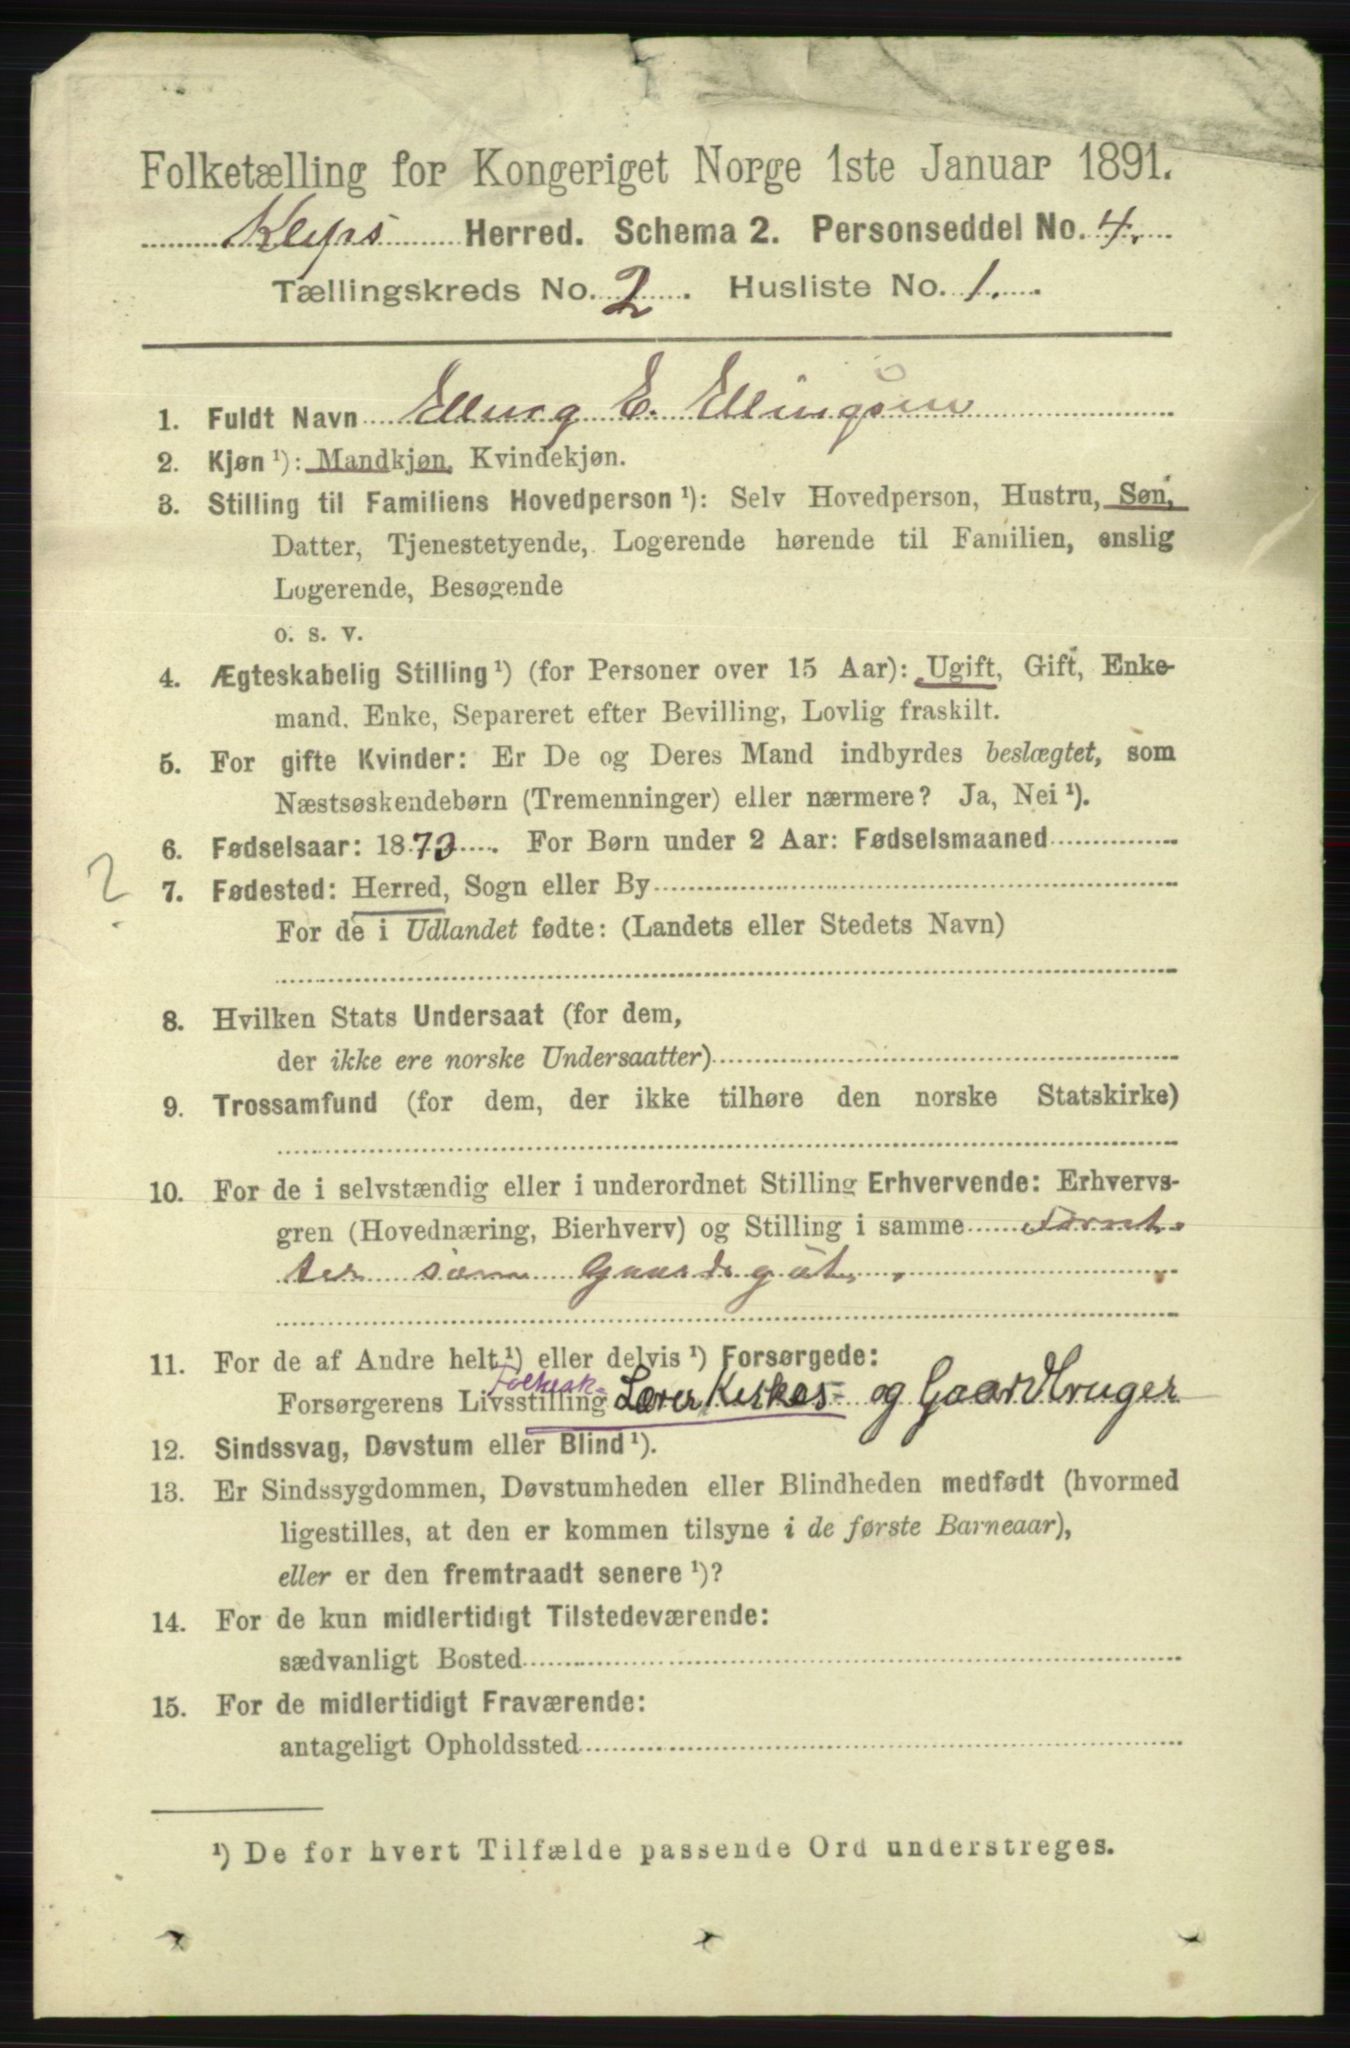 Folketælling for Kongeriget Norge 1ste Januar 1891.
Kleps Herred. Schema 2. Personseddel No. 4.
Tællingskreds No. 2. Husliste No. 1.
1. Fuldt Navn Elling E. Ellingsen
2. Kjøn¹): Mandkjøn, Kvindekjøn.
3. Stilling til Familiens Hovedperson¹): Selv Hovedperson, Hustru, Søn,
Datter, Tjenestetyende, Logerende hørende til Familien, enslig
Logerende, Besøgende
o. s. v.
4. Ægteskabelig Stilling¹) (for Personer over 15 Aar): Ugift, Gift, Enke-
mand, Enke, Separeret efter Bevilling, Lovlig fraskilt.
5. For gifte Kvinder: Er De og Deres Mand indbyrdes beslægtet, som
Næstsøskendebørn (Tremenninger) eller nærmere? Ja, Nei¹).
6. Fødselsaar: 1873. For Børn under 2 Aar: Fødselsmaaned
?
7. Fødested: Herred, Sogn eller By
For de i Udlandet fødte: (Landets eller Stedets Navn)
8. Hvilken Stats Undersaat (for dem,
der ikke ere norske Undersaatter)
9. Trossamfund (for dem, der ikke tilhøre den norske Statskirke)
10. For de i selvstændig eller i underordnet Stilling Erhvervende: Erhvervs-
gren (Hovednæring, Bierhverv) og Stilling i samme
som Gaardsgut
11. For de af Andre helt¹) eller delvis¹) Forsørgede:
Forsørgerens Livsstilling Lærer, Kirkes- og Gaardbruger
12. Sindssvag, Døvstum eller Blind¹).
13. Er Sindssygdommen, Døvstumheden eller Blindheden medfødt (hvormed
ligestilles, at den er kommen tilsyne i de første Barneaar),
eller er den fremtraadt senere¹)?
14. For de kun midlertidigt Tilstedeværende:
sædvanligt Bosted
15. For de midlertidigt Fraværende:
antageligt Opholdssted
¹) De for hvert Tilfælde passende Ord understreges.